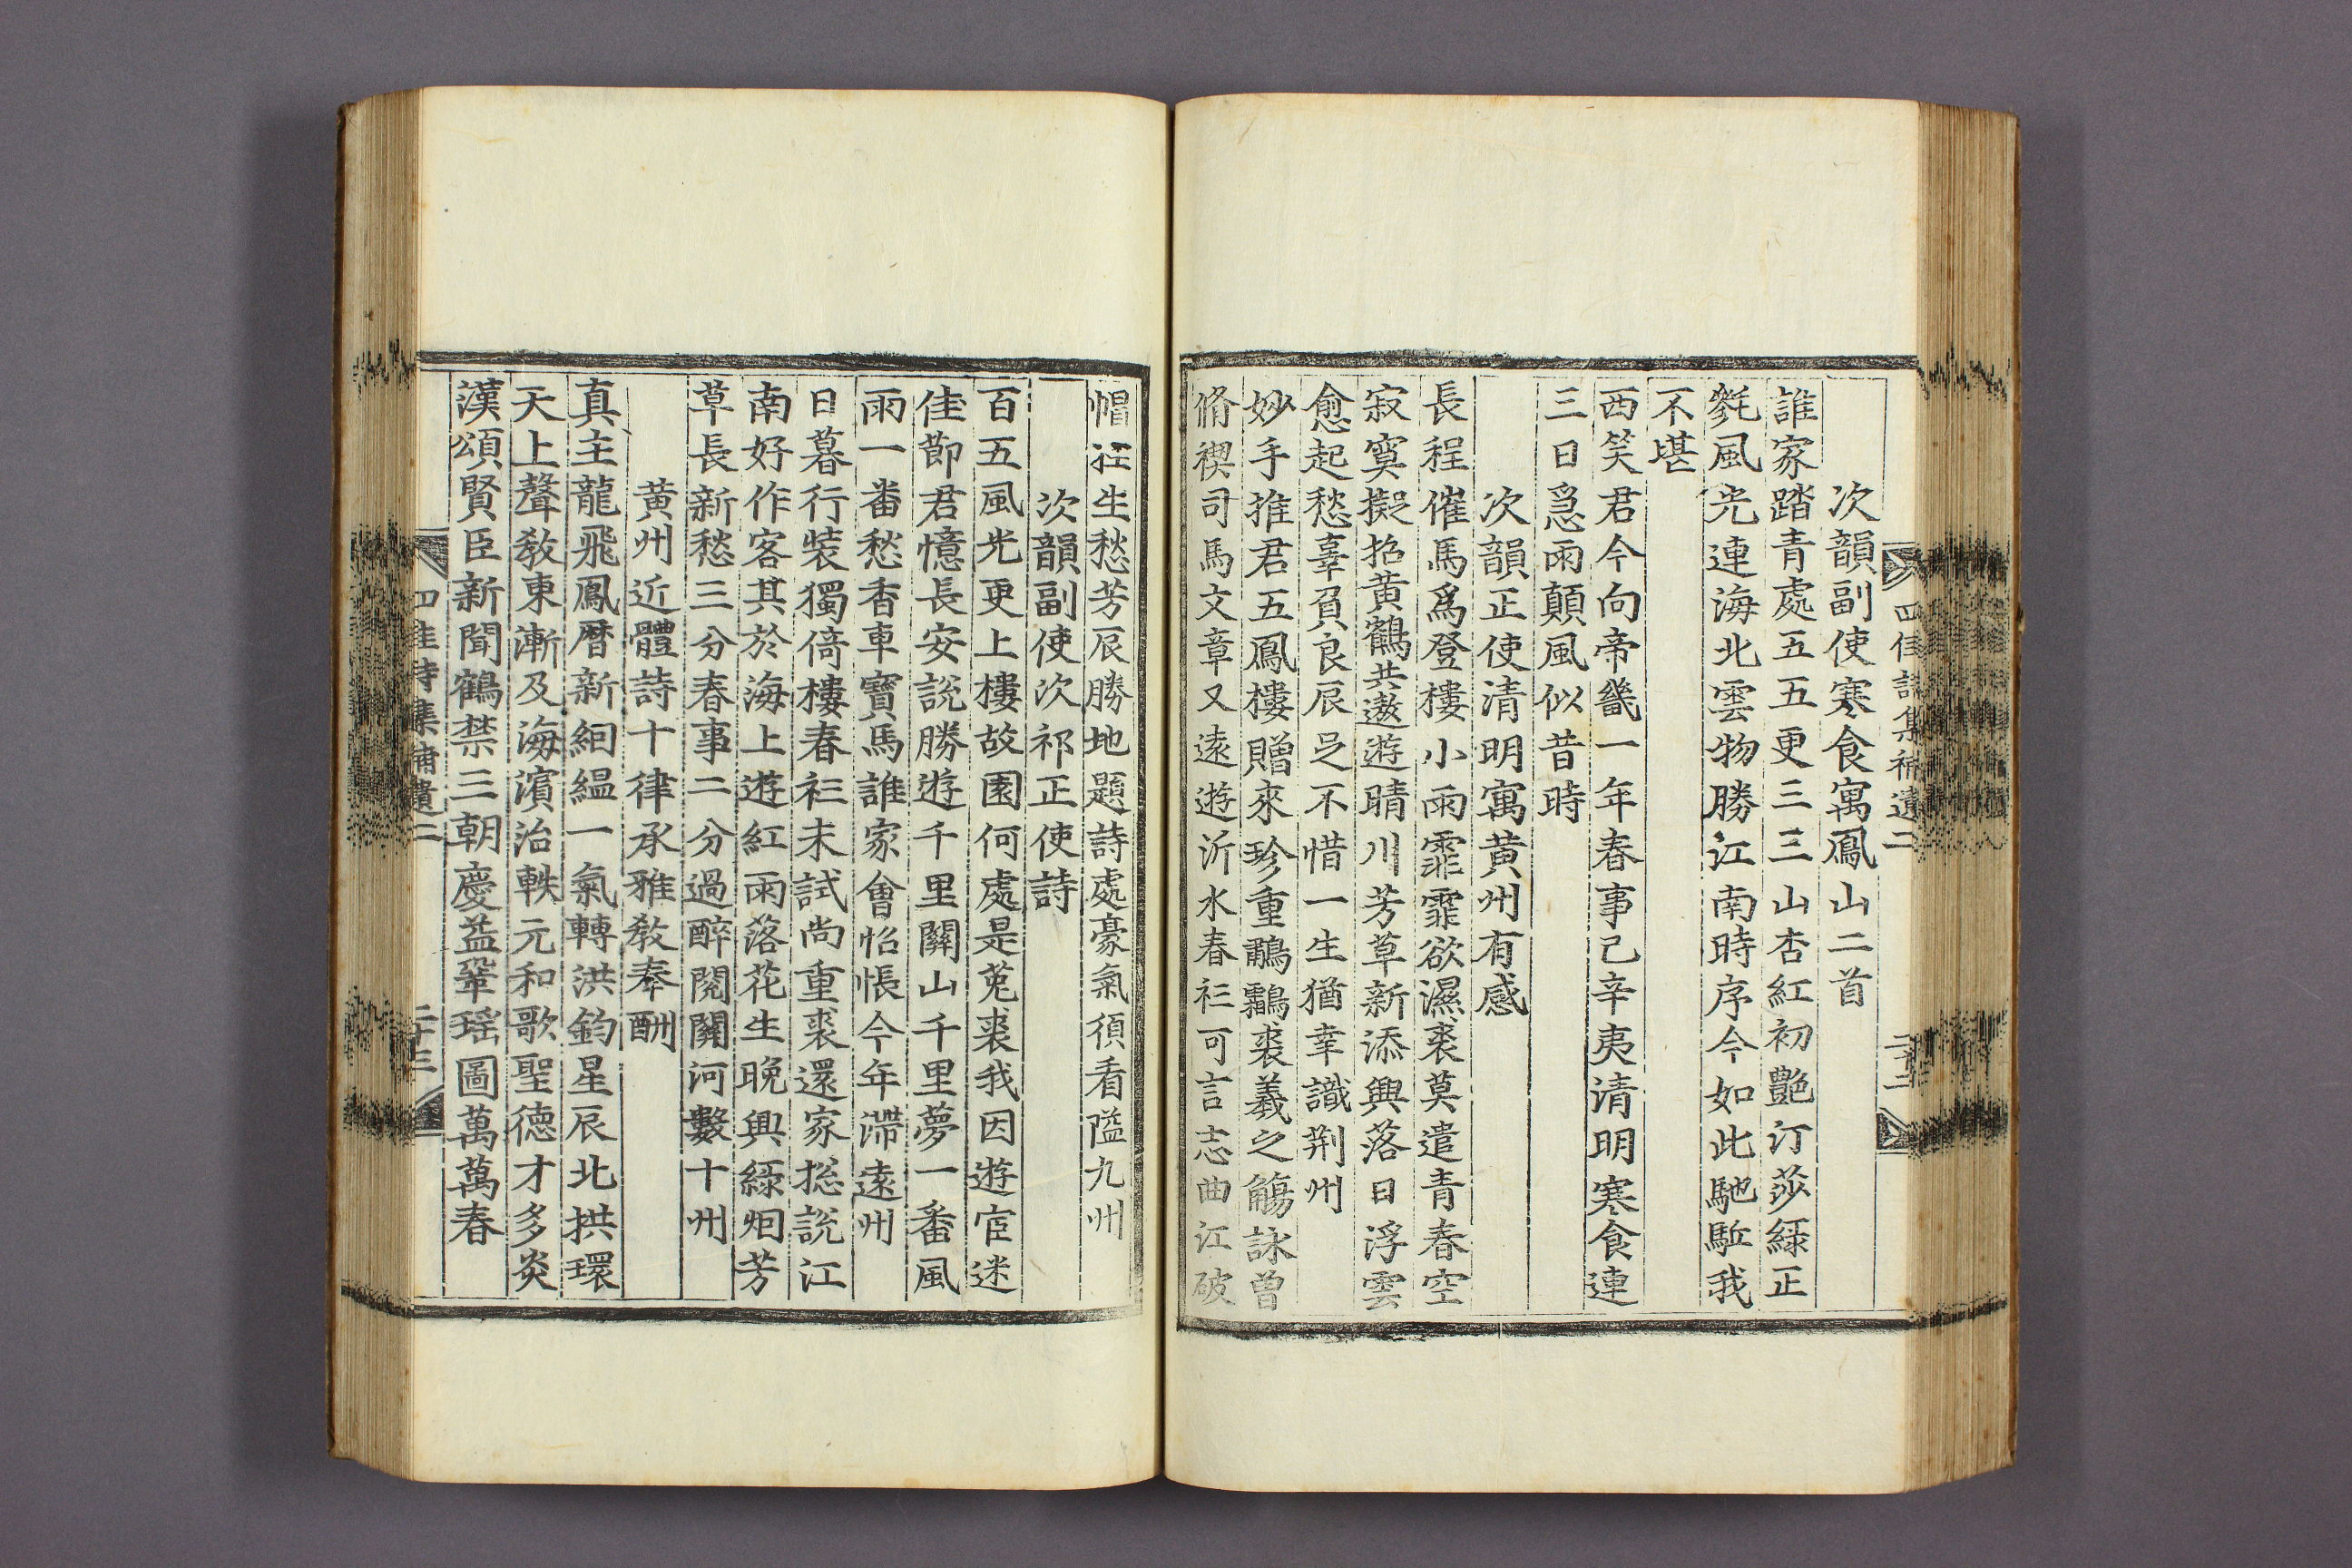 四佳詩集補遺二
次韻副使寒食寓鳳山二首
誰家踏青處五五更三三山杏紅初艶汀莎緑正
毿風光連海北雲物勝江南時序今如此馳駈我
不堪
西笑君今向帝畿一年春事已辛夷清明寒食連
三日急雨顛風似昔時
次韻正使清明寓黄州有感
長程催馬爲登樓小雨霏霏欲濕裘莫遣青春空
寂寞擬招黄鶴共遨遊晴川芳草新添興落日浮雲
愈起愁辜負良辰足不惜一生猶幸識荆州
妙手推君五鳳樓贈來珍重鷫鸘裘羲之觴詠曾
脩禊司馬文章又遠遊沂水春衫可言志曲江破
帽狂生愁芳辰勝地題詩處豪氣須看隘九州
次韻副使次祁正使詩
百五風光更上樓故園何處是菟裘我因遊宦迷
佳節君憶長安說勝遊千里關山千里夢一番風
雨一番愁香車寶馬誰家會怊悵今年滯遠州
日暮行装獨倚樓春衫未試尚重裘還家揔説江
南好作客其於海上遊紅雨落花生晚興緑烟芳
草長新愁三分春事二分過醉閱關河數十州
黄州近體詩十律承雅教奉酬
真主龍飛鳳曆新絪緼一氣轉洪鈞星辰北拱環
天上聲教東漸及海濱治軼元和歌聖德才多炎
漢頌賢臣新聞鶴禁三朝慶益鞏瑶圖萬萬春
四佳詩集補遺二
二十三